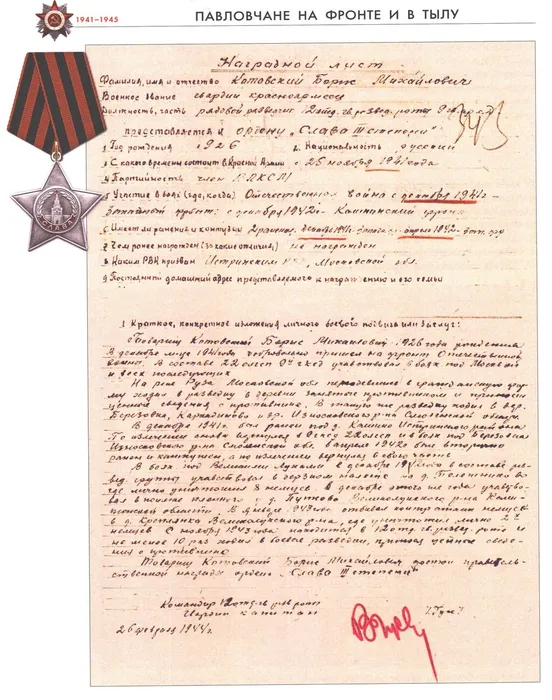 1941–1945
ПАВЛОВЧАНЕ НА ФРОНТЕ И В ТЫЛУ
Наградной лист
Фамилия, имя и отчество Котовский Борис Михайлович
Военное звание гвардии красноармеец
Должность, часть рядовой разведчик
представляется к ордену „Слава III степени"
1 Год рождения 1926 2. Национальность русский
3 С какого времени состоит в Красной Армии с 25 ноября 1941 года
4 Партийность член ВЛКСМ
5 Участие в боях (где, когда) Отечественная война с декабря 1941 г
Западный фронт: с декабря 1942 г. Калининский фронт
6 Имеет ли ранения и контузии 2 ранения, декабрь 1941г. апрель 1942г.
7 Чем ранее награжден (за какие отличия) не награжден
8 Каким РВК призван Истринским Московской обл.
9 Постоянный домашний адрес представляемого к награждению и его семьи
1 Краткое, конкретное изложение личного боевого подвига или заслуг:
Товарищ Котовский Борис Михайлович 1926 года рождения
В декабре м-це 1941 года добровольно пришел на фронт Отечественной
войны. В составе 22 участвовал в боях под Москвой
и всех последующих
На реке Руза Московской обл переодевшись в гражданскую фор
му ходил в разведку в деревни занятые противником и приносил
ценные сведения о противнике. В такую же разведку ходил в дер.
Березовка, и др. Износковского р-на Смоленской области
В декабре 1941г. был ранен под д. Кашино Истринского района
По излечении вновь вернулся в и в боях под Березовкой
Износковского р-на Смоленской обл. в апреле 1942г был вторично
ранен и контужен, но по излечении вернулся в свою часть
В боях под Великими Луками в декабре в составе развед.
группы участвовал в дерзком налете на д. Поленкино
где лично уничтожил 3 немцев. В декабре этого же года участвовал
в ночном налете у д. Путково Великолукского р-на Кали-
нинской области. В январе 1943 года отбивал контратаки немцев
в д. Великолукского р-на, где уничтожил лично 22
немцев. С ноября 1943 года находится в 12 отд. развед. роте и
не менее 10 раз ходил в боевые разведки, принося ценные сведе
ния о противнике
Товарищ Котовский Борис Михайлович достоин правитель-
ственной награды орден „Слава III степени"
Командир 12 отд. гв. развед роты
Гвардии капитан /Гуж/
26 февраля 1944 г.